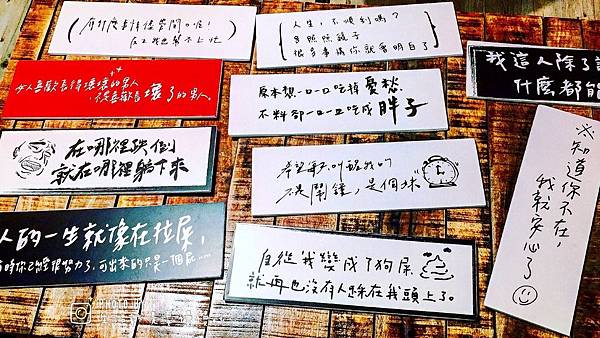 有什麼事情儘管開口喔!
反正我也幫不上忙
人生,不順利嗎?
多照照鏡子
很多事情你就會明白了
我這人除了
什麼都
女人喜歡長得壞壞的男人
不是喜歡長壞了的男人。
原本想一口一口吃掉憂愁
不料卻一口一口吃成胖子
在哪裡跌倒
就在哪裡躺下來
希望每天叫醒我的
不是鬧鐘,是個妹
※知道你不在,
我就安心了
人的一生就像在拉屎,
有時你已經很努力了,可出來的只是一個屁……
自從我變成了狗屎
就再也沒有人踩在我頭上了。